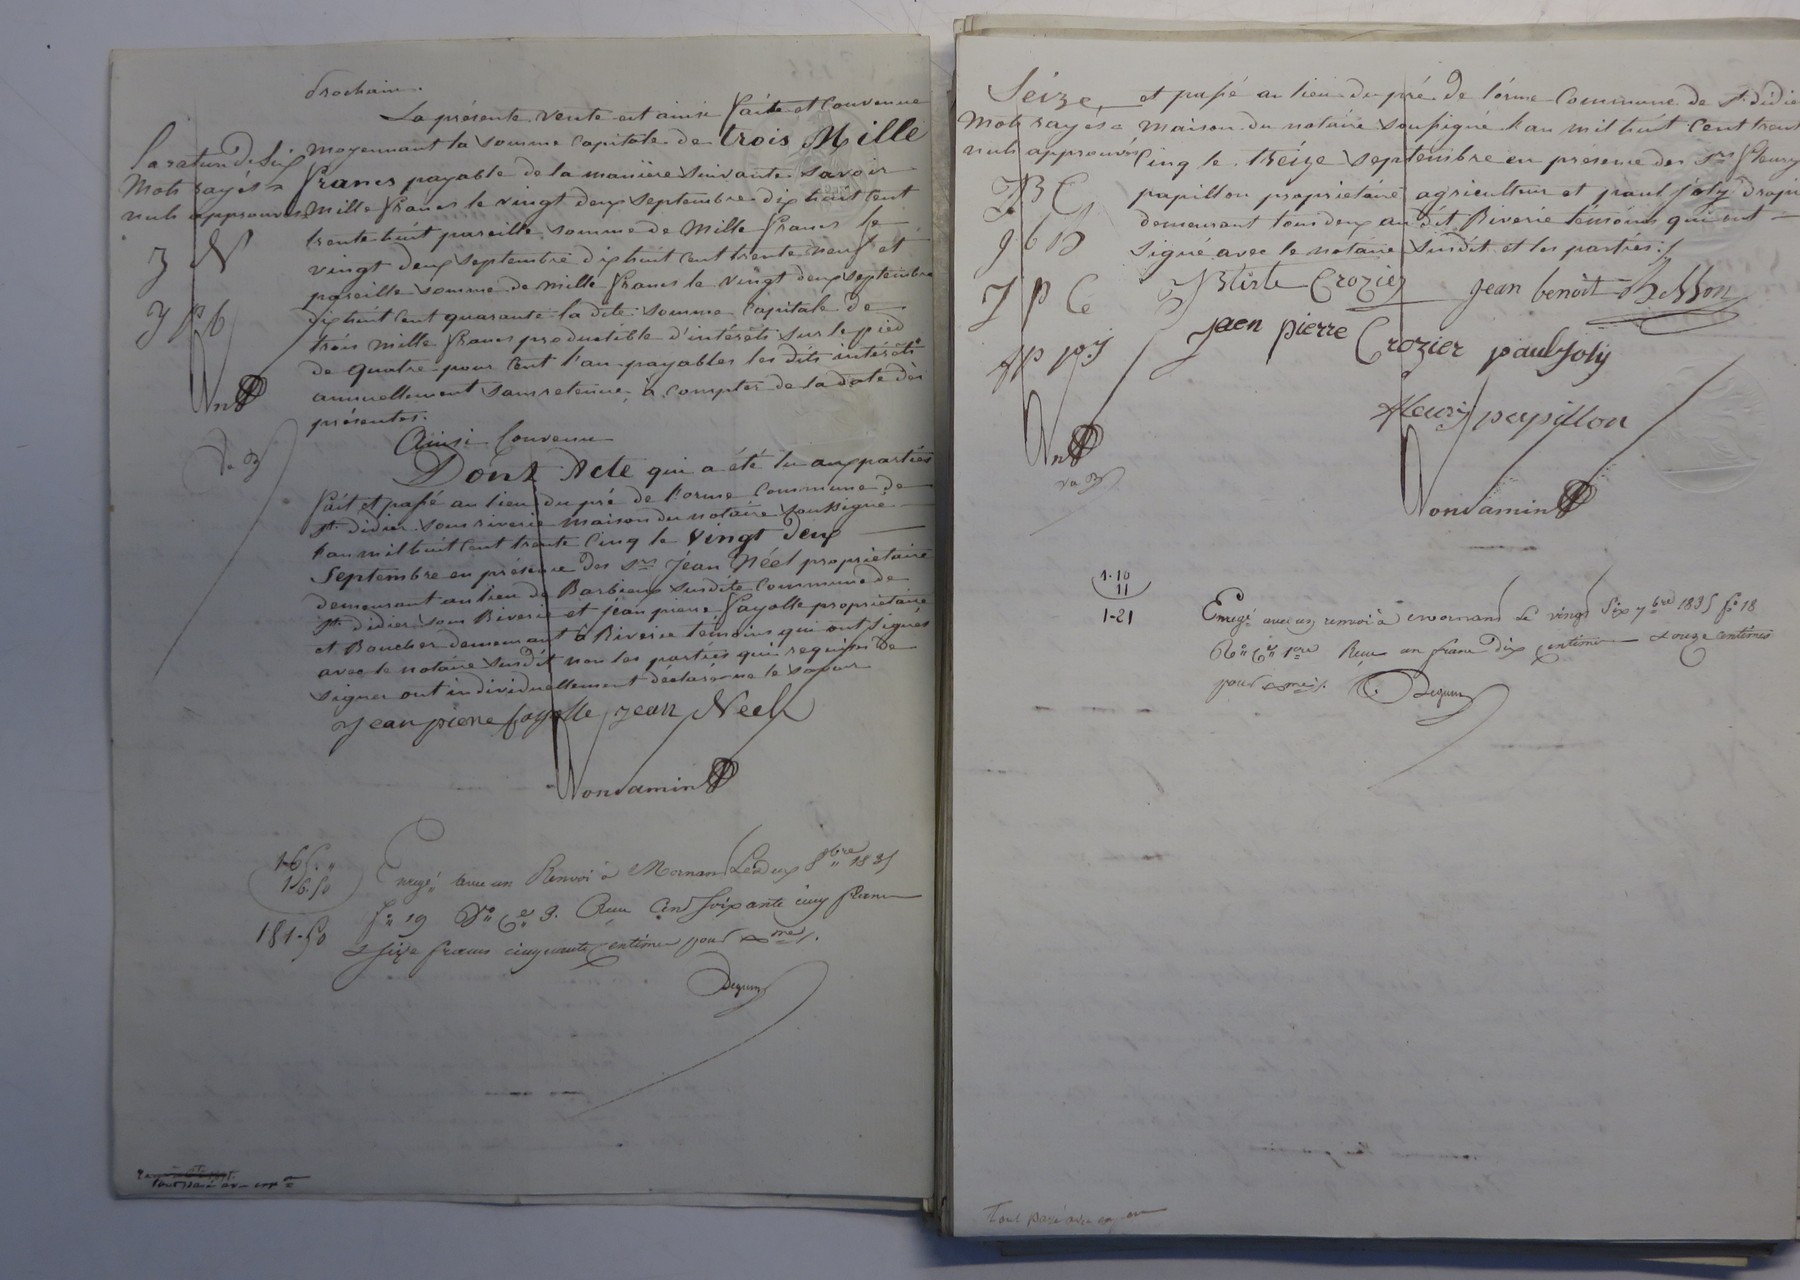 prochain.
La présente vente est ainsi faite et convenue
moyennant la somme capitale de trois Mille
francs payable de la manière suivante savoir
Mille francs le vingt deux septembre dix huit cent
trente huit pareille somme de Mille francs le
vingt deux septembre dix huit cent trente neuf et
pareille somme de Mille francs le vingt deux septembre
dix huit cent quarante la dite somme capitale de
trois mille francs productible d'intérêts sur le pied
de quatre pour cent l'an payables les dits intérêts
annuellement sans retenue, à compter de la date des
présentes.
La rature de six
Mots rayés
nuls approuvés
J N
J P f
Ainsi Convenu
Dont Acte qui a été lu aux parties
fait et passé au lieu du pré de lorme commune de
St. didier sous riverie maison du notaire soussigné
l'an mil huit cent trente cinq le vingt deux
Septembre en présence des srs Jean Néel propriétaire
demeurant au lieu de Barbieux susdite commune de
St. didier sous Riverie et jean pierre fayolle propriétaire
et Boucher demeurant à Riverie témoins qui ont signés
avec le notaire susdit non les parties qui requises de
signer ont individuellement déclaré ne le savoir
jean pierre fayolle jean Neel
Condamin
165. "
16.50
181-50
Enregé. avec un Renvoi à Mornant Le deux 8bre 1835
fo. 19 Vo. Ce. 3. Reçu Cent soixante cinq francs
& seize francs cinquante centimes pour xme.
Deguin
Seize, et passé au lieu du pré de lorme commune de St. didier
Mots rayés maison du notaire soussigné l'an mil huit cent trente
nuls approuvés cinq le treize septembre en présence des srs fleury
papillon propriétaire agriculteur et paul joly drapier
demeurant tous deux au dit Riverie témoins qui ont
signé avec le notaire susdit et les parties.
J B C
J b B
J P C
f p p j
J Btiste Crozier jean benoit Besson
jaen pierre Crozier paul joly
fleury papillon
Condamin
1-10
11
1-21
Enregé. avec un renvoi à mornant le vingt six 7bre 1835 fo. 18
Ro. Ce. 1ere Reçu un franc dix centimes & onze centimes
pour xme.
Deguin